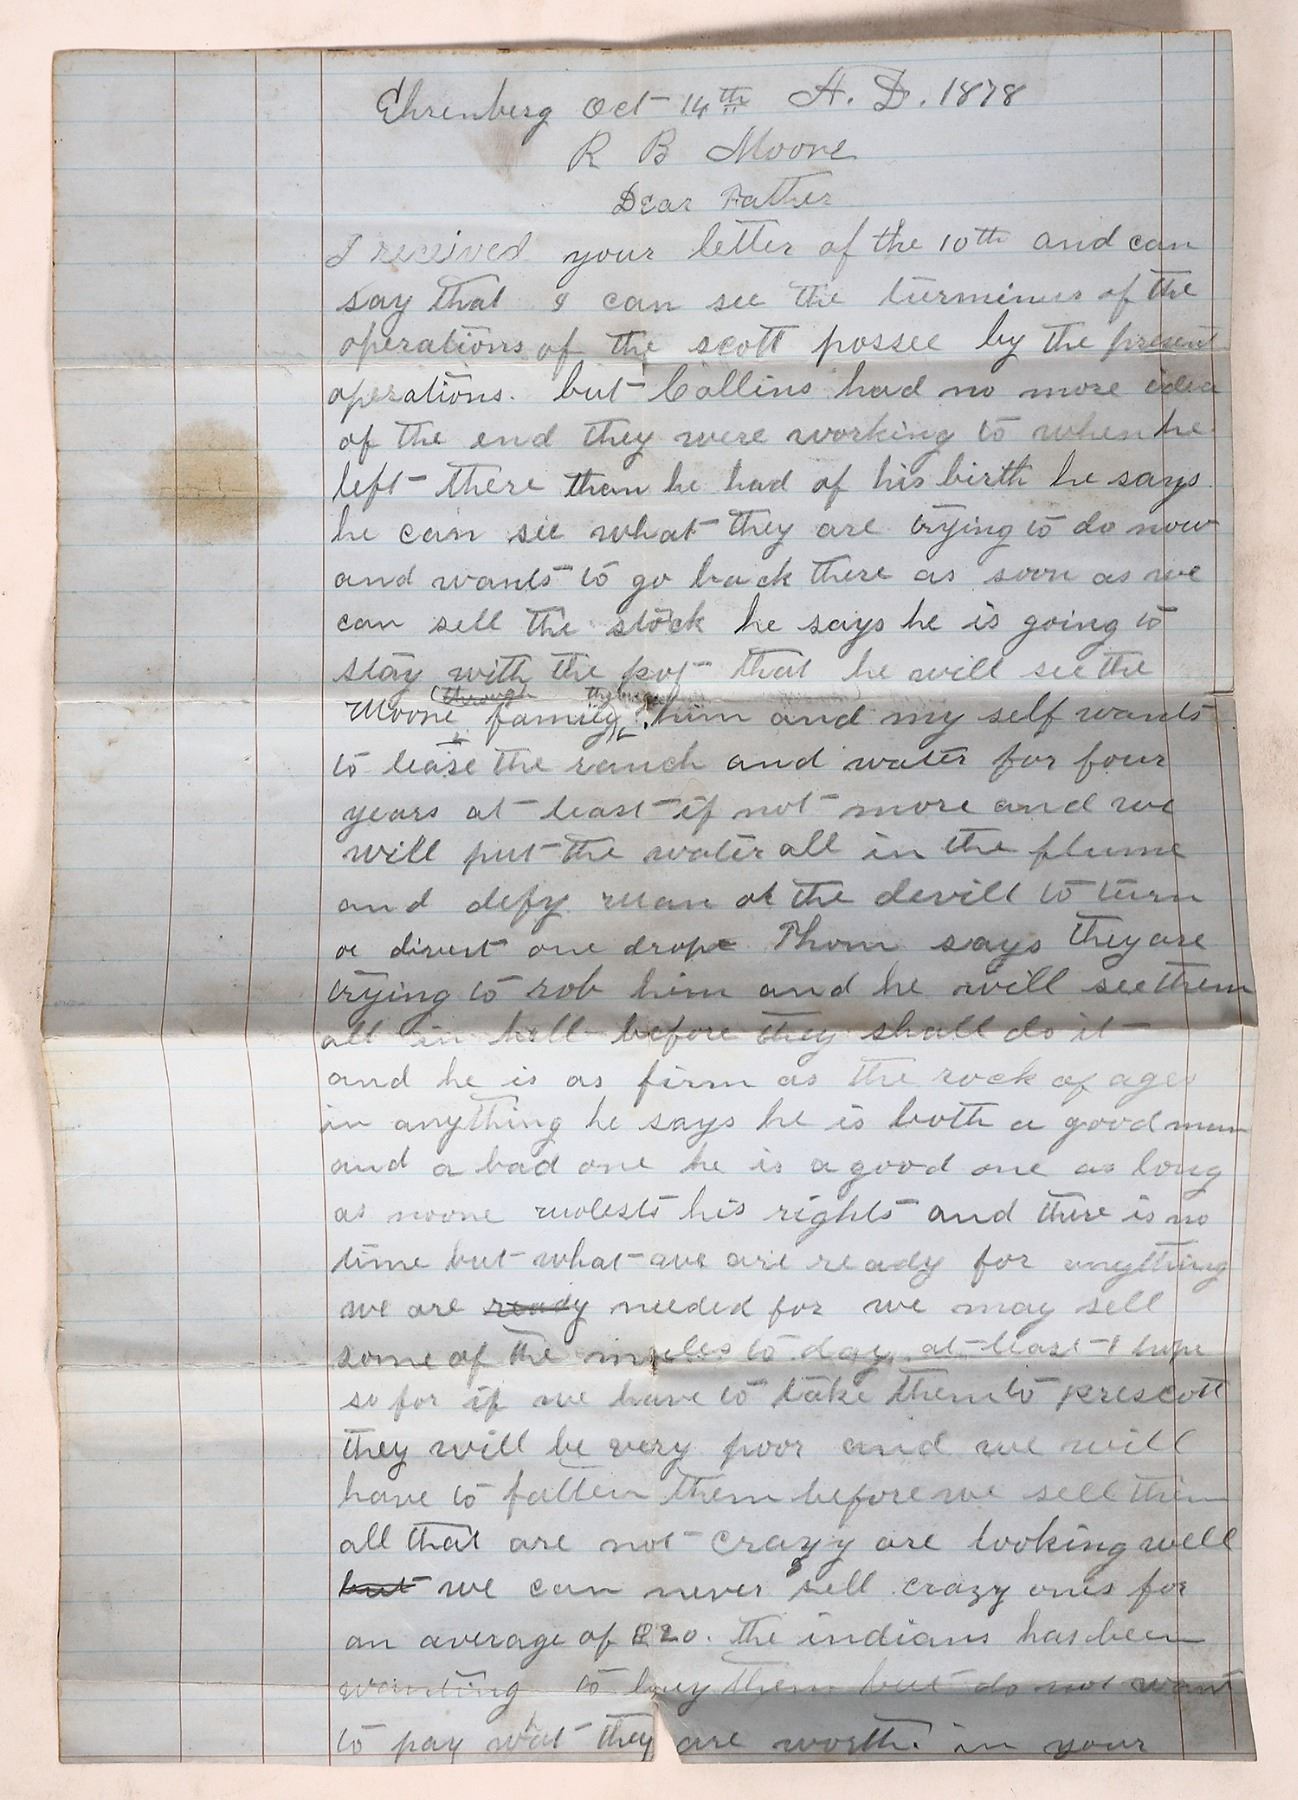 Ehrenberg Oct 14th A. D. 1878
R B Moore
Dear Father
I received your letter of the 10th and can
say that I can see the turminus of the
operations of the scott possee by the present
operations. but Collins had no more idea
of the end they were working to when he
left there than he had of his birth he says
he can see what they are trying to do now
and wants to go back there as soon as we
can sell the stock he says he is going to
stay with the pot that he will see the
through
Moore family him and my self wants
to lease the ranch and water for four
years at least if not more and we
will put the water all in the flume
and defy man or the devill to turn
or divert one drop Thom says they are
trying to rob him and he will see them
all in hell before they shall do it
and he is as firm as the rock of ages
in anything he says he is both a good man
and a bad one he is a good one as long
as noone molests his rights and there is no
time but what we are ready for anything
we are ready needed for we may sell
some of the mules to day at least I hope
so for if we have to take them to prescott
they will be very poor and we will
have to fatten them before we sell them
all that are not crazy are looking well
but we can never sell crazy ones for
an average of $20. the indians has been
wanting to buy them but do not want
to pay what they are worth. in your